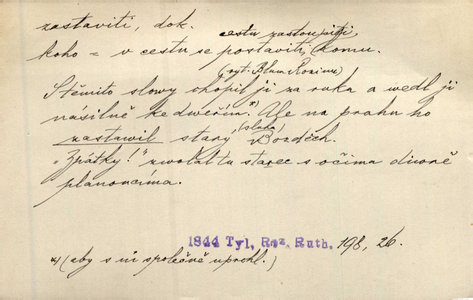 zastaviti, dok.
cestu zastoupiti,
koho = v cestu se postaviti, komu.
(ryt. Blum Rozinu)
S těmito slowy chopil ji za ruku a wedl ji
násilně ke dweřím.*) Ale na prahu ho
zastawil starý (sluha) Bonděch.
„Zpátky!" zwolal tu starec s očima diwoně
planoucíma.
1844 Tyl, Roz. Ruth. 198, 26.
*) (aby s ní společně uprchl.)